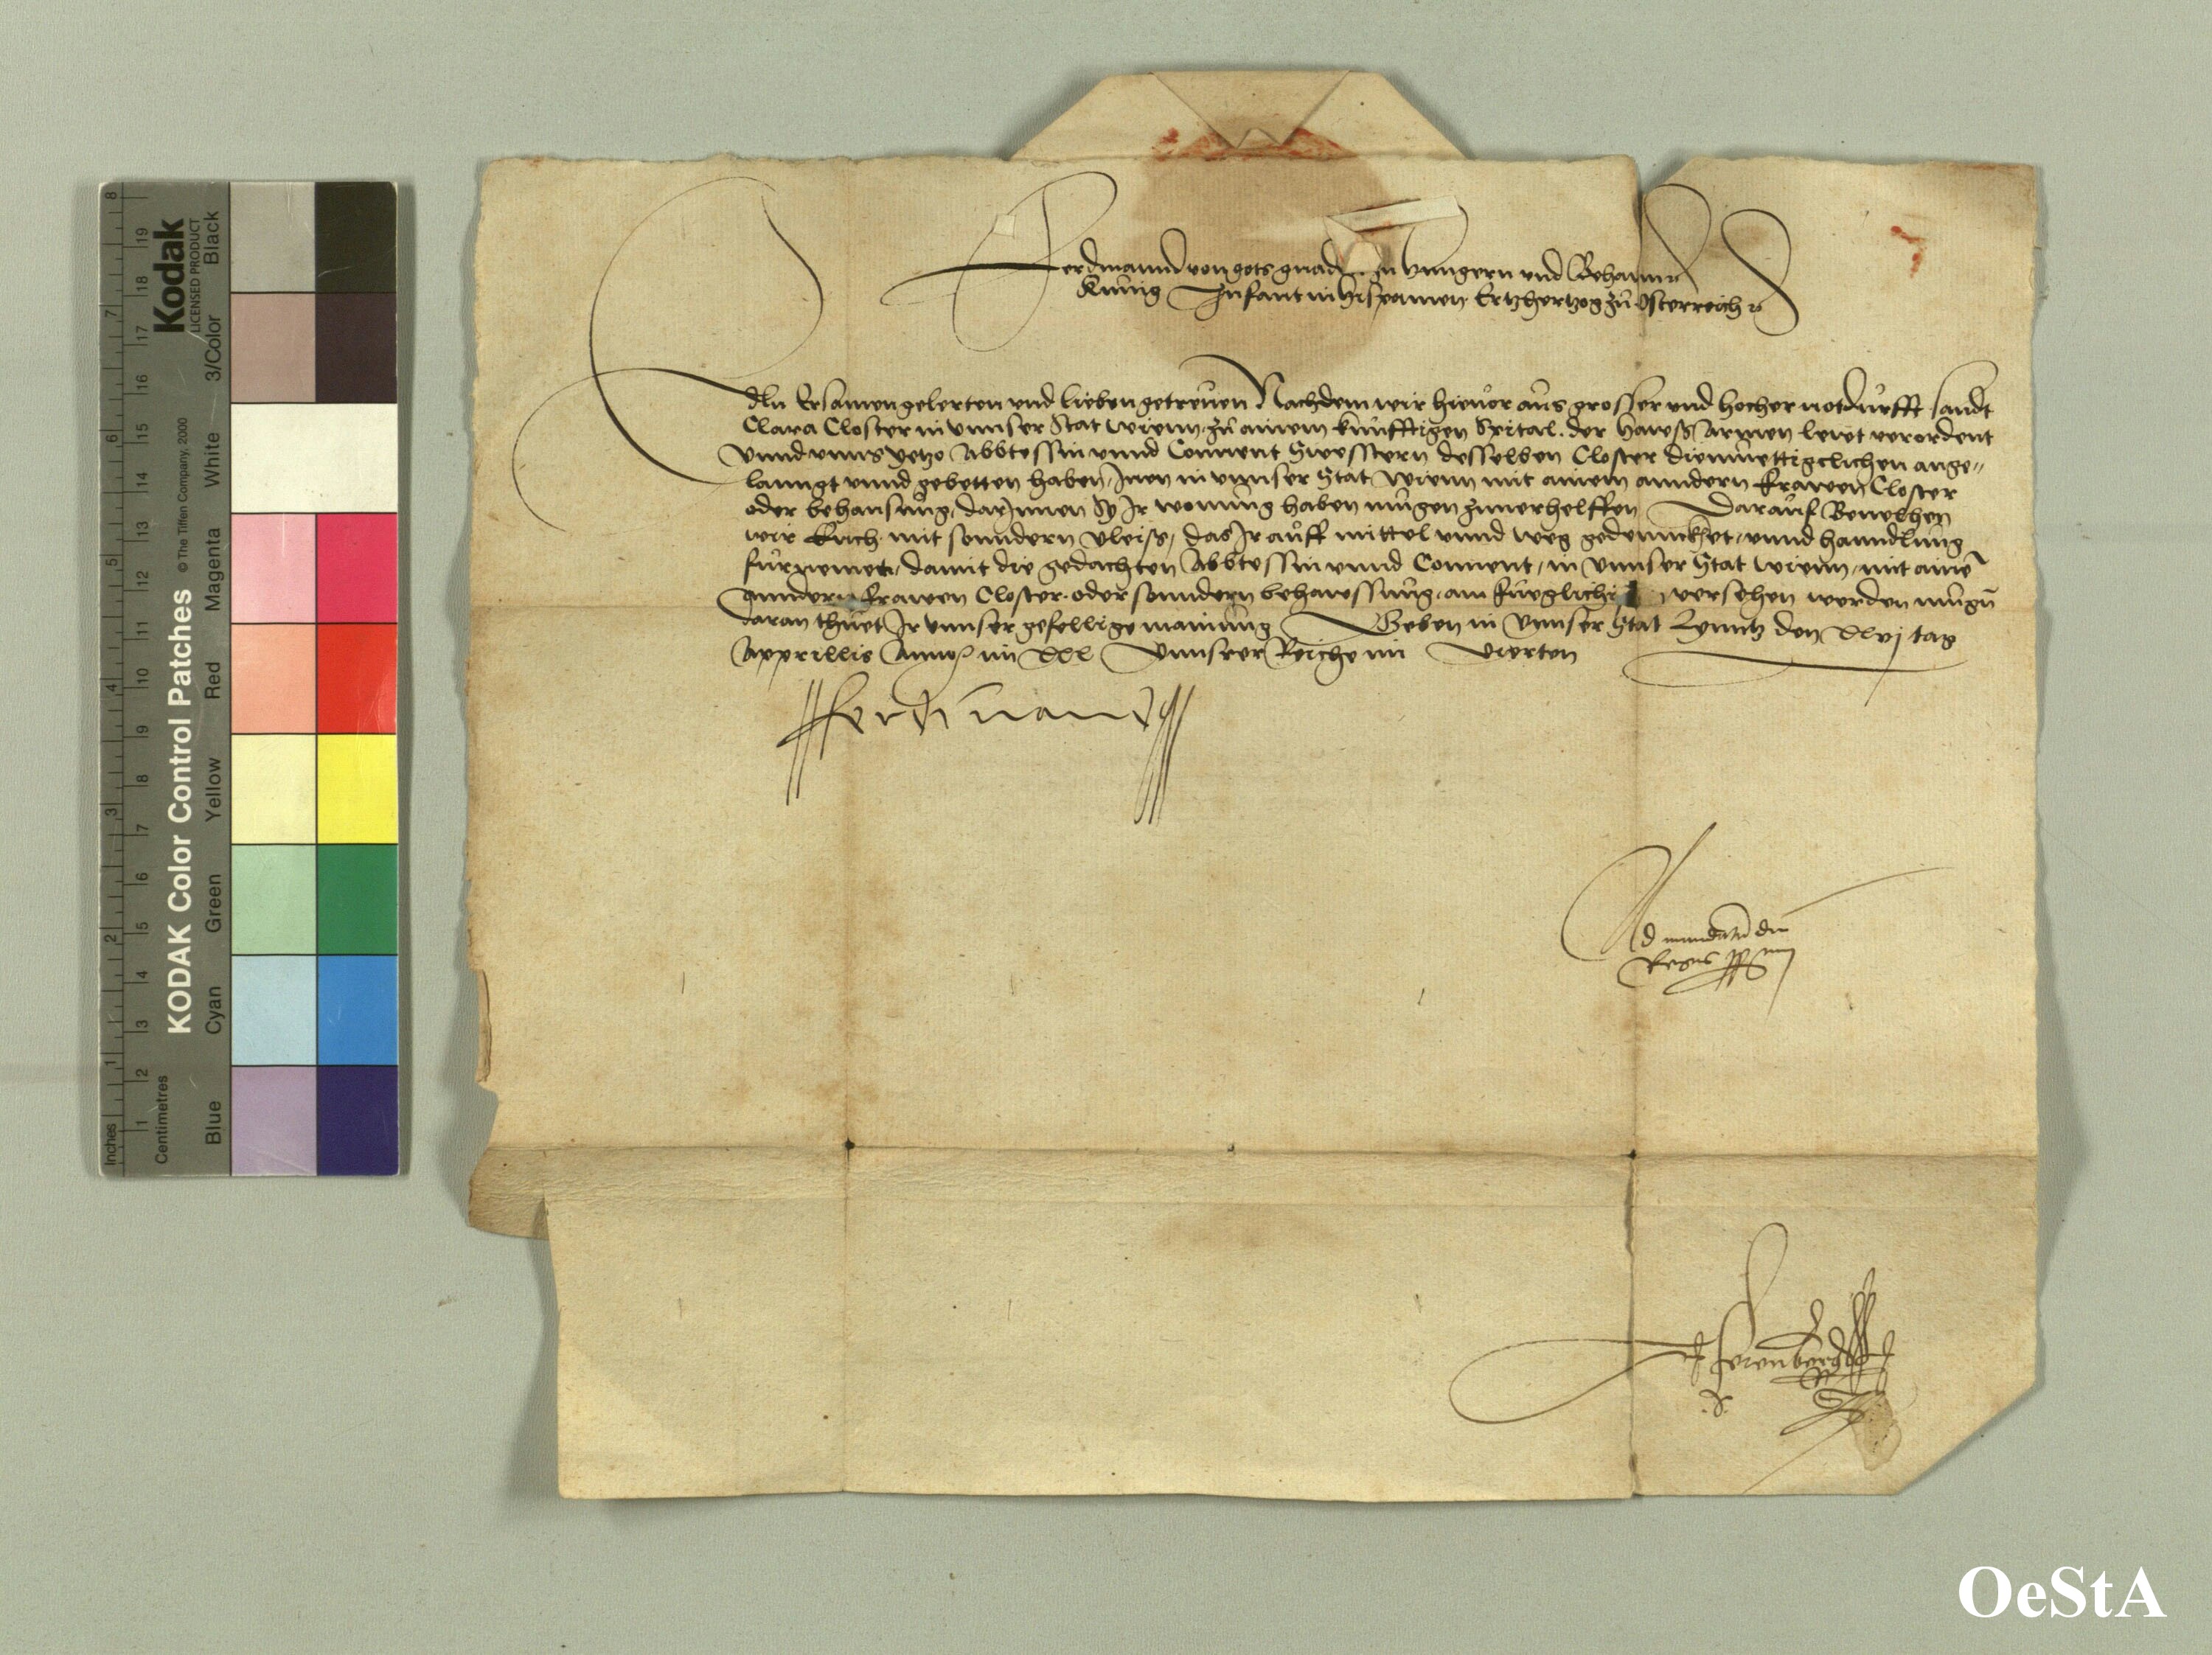 Ferdinannd von gots gnad in Hungern und Behaim
Kunig Infant in Hispanien Ertzhertzog zů Osterreich
Edln Ersamen gelerten und lieben getreuen Nachdem wir hieuor aus grosser und hocher notdurfft sandt
Clara Closter in unnser Stat Wienn, zu ainem kunfftigen Spital der Hawss Armen lewt verordent
Unnd unns yetzo Abbtessin unnd Convent Swesstern desselben Closter diemuettigclichen ange-
lanngt unnd gebetten haben, Inen in unnser Stat Wienn mit ainem anndern Frawen Closter
oder behausung, darInnen Sy Ir wonung haben mugen zuuerhelffen Darauf Bevelhen
wir Euch mit sonndern vleiss, das Ir auff mittel unnd weg gedennckhet, unnd hanndlung
furnemet, damit die gedachten Abbtessin unnd Convent, in unnser Stat Wienn, mit aine
anndern Frawen Closter oder sonndern behawssung, am fueglichi versehen werden mugn
daran thuet Ir unnser gefellige mainung Geben in unnser Stat Lynntz den XXvj tag
Apprillis Anno im XXX Unnserer Reiche im Vierten
Ferdinand
Ad mandatu dni
Regis
OeStA
KODAK Color Control Patches
© The Tiffen Company, 2000
Kodak
LICENSED PRODUCT
Inches
1 2 3 4 5 6 7 8
Centimetres
1 2 3 4 5 6 7 8 9 10 11 12 13 14 15 16 17 18 19
Blue
Cyan
Green
Yellow
Red
Magenta
White
3/Color
Black